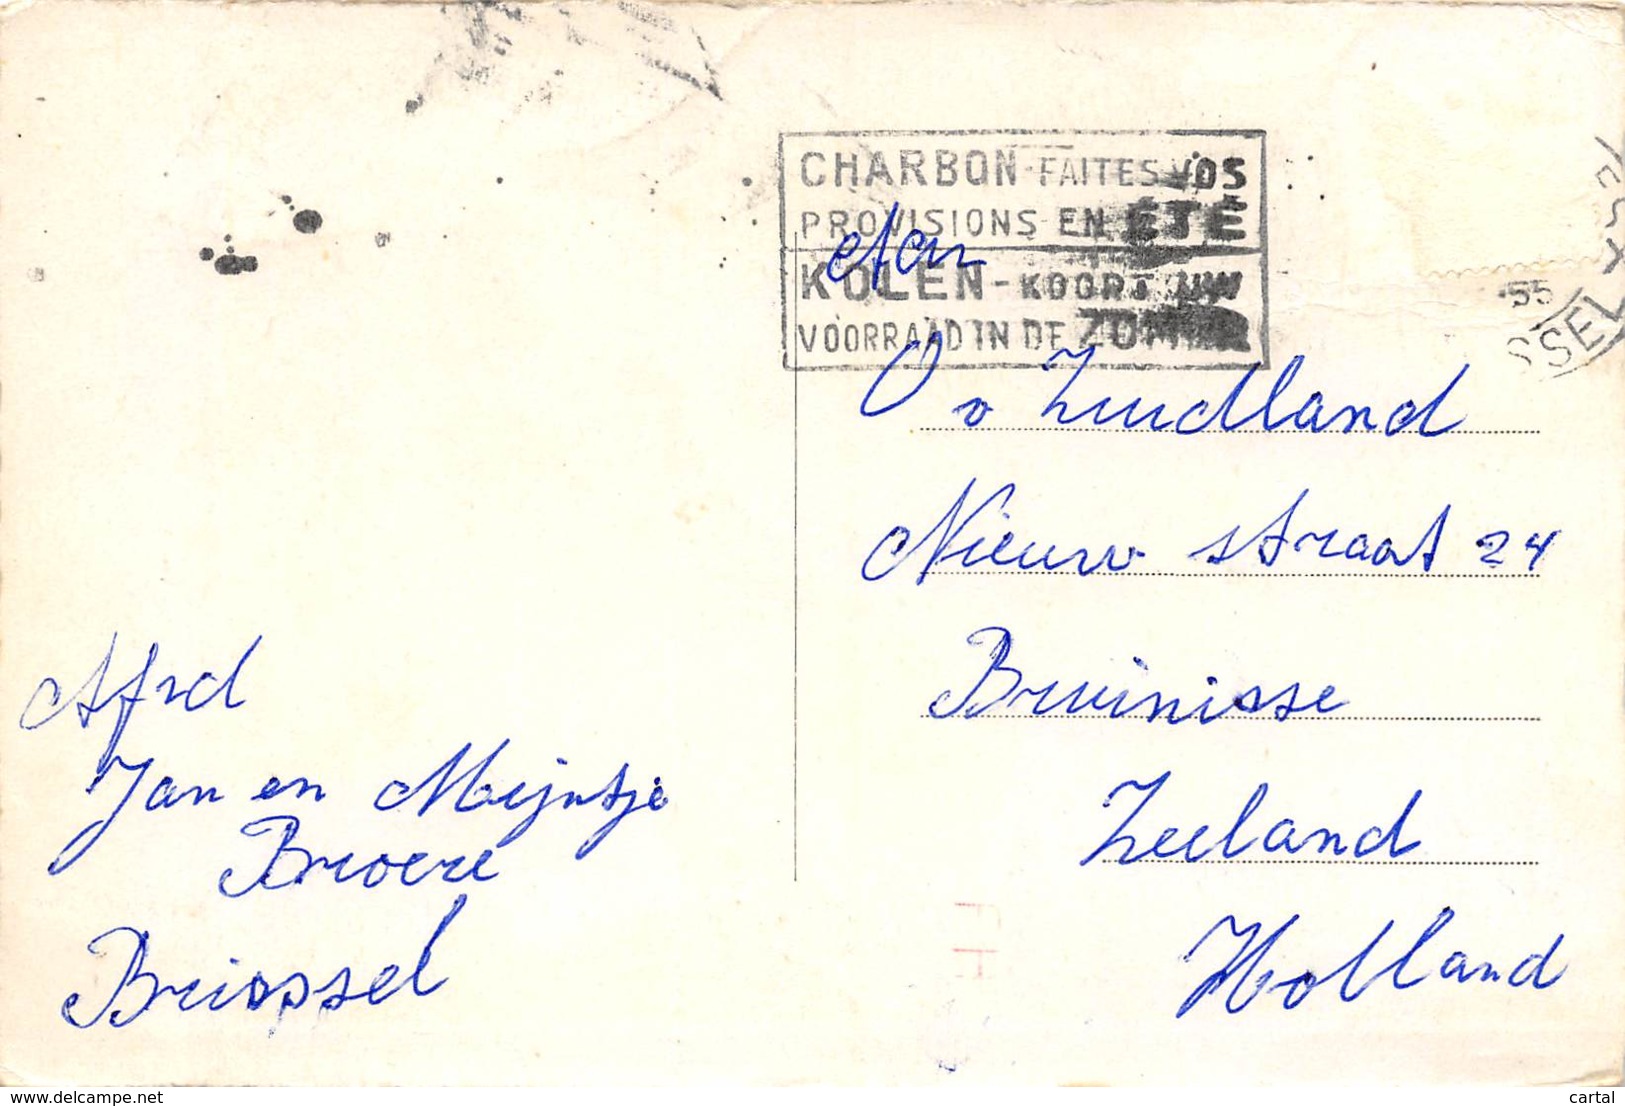 CHARBON-FAITES VOS
PROVISIONS EN ÉTÉ
KOLEN-KOORT UW
VOORRAAD IN DE ZOMER
55
SSEL
Aan
v Zuidland
Nieuw straat 24
Bruinisse
Zeeland
Holland
Afzd
Jan en Meijntje
Broere
Brussel
delcampe.net
cartal